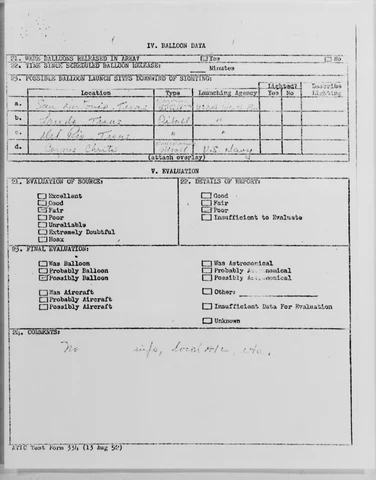 IV. BALLOON DATA
21. WERE BALLOONS RELEASED IN AREA? Yes No
22. TIME SINCE SCHEDULED BALLOON RELEASE: Minutes
23. POSSIBLE BALLOON LAUNCH SITES DOWNWIND OF SIGHTING:
Lighted? Describe
Location Type Launching Agency Yes No Lighting
a. San Antonio, Texas
b. Texas "
c. Del Rio, Texas " "
d. Corpus Christi U.S. Navy
(attach overlay)
V. EVALUATION
21. EVALUATION OF SOURCE: 22. DETAILS OF REPORT:
Excellent Good
Good Fair
Fair Poor
Poor Insufficient to Evaluate
Unreliable
Extremely Doubtful
Hoax
23. FINAL EVALUATION:
Was Balloon Was Astronomical
Probably Balloon Probably Astronomical
Possibly Balloon Possibly Astronomical
Was Aircraft Other:
Probably Aircraft
Possibly Aircraft Insufficient Data For Evaluation
Unknown
24. COMMENTS:
No info, local A/C, etc.
ATIC Test Form 334 (13 Aug 52)